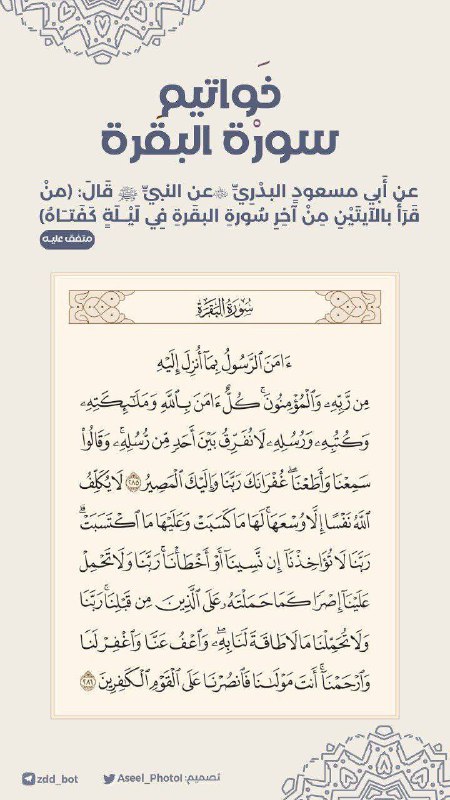 خَواتيم
سورْة البقَرة
عن أَبي مسعودٍ البدْرِيِّ ﵁ عن النبيِّ ﷺ قَالَ: (منْ
قَرَأَ بالآيتَيْنِ مِنْ آخِرِ سُورةِ البقَرةِ فِي لَيْلَةٍ كَفَتَاهُ)
متفق عليه
سُورَةُ البَقَرَةِ
ءَامَنَ ٱلرَّسُولُ بِمَآ أُنزِلَ إِلَيْهِ
مِن رَّبِّهِۦ وَٱلْمُؤْمِنُونَۚ كُلٌّ ءَامَنَ بِٱللَّهِ وَمَلَٰٓئِكَتِهِۦ
وَكُتُبِهِۦ وَرُسُلِهِۦ لَا نُفَرِّقُ بَيْنَ أَحَدٍ مِّن رُّسُلِهِۦۚ وَقَالُوا۟
سَمِعْنَا وَأَطَعْنَاۖ غُفْرَانَكَ رَبَّنَا وَإِلَيْكَ ٱلْمَصِيرُ ٢٨٥ لَا يُكَلِّفُ
ٱللَّهُ نَفْسًا إِلَّا وُسْعَهَاۚ لَهَا مَا كَسَبَتْ وَعَلَيْهَا مَا ٱكْتَسَبَتْۗ
رَبَّنَا لَا تُؤَاخِذْنَآ إِن نَّسِينَآ أَوْ أَخْطَأْنَاۚ رَبَّنَا وَلَا تَحْمِلْ
عَلَيْنَآ إِصْرًا كَمَا حَمَلْتَهُۥ عَلَى ٱلَّذِينَ مِن قَبْلِنَاۚ رَبَّنَا
وَلَا تُحَمِّلْنَا مَا لَا طَاقَةَ لَنَا بِهِۦۖ وَٱعْفُ عَنَّا وَٱغْفِرْ لَنَا
وَٱرْحَمْنَآۚ أَنتَ مَوْلَىٰنَا فَٱنصُرْنَا عَلَى ٱلْقَوْمِ ٱلْكَٰفِرِينَ ٢٨٦
تصميم: Aseel_Photol zdd_bot